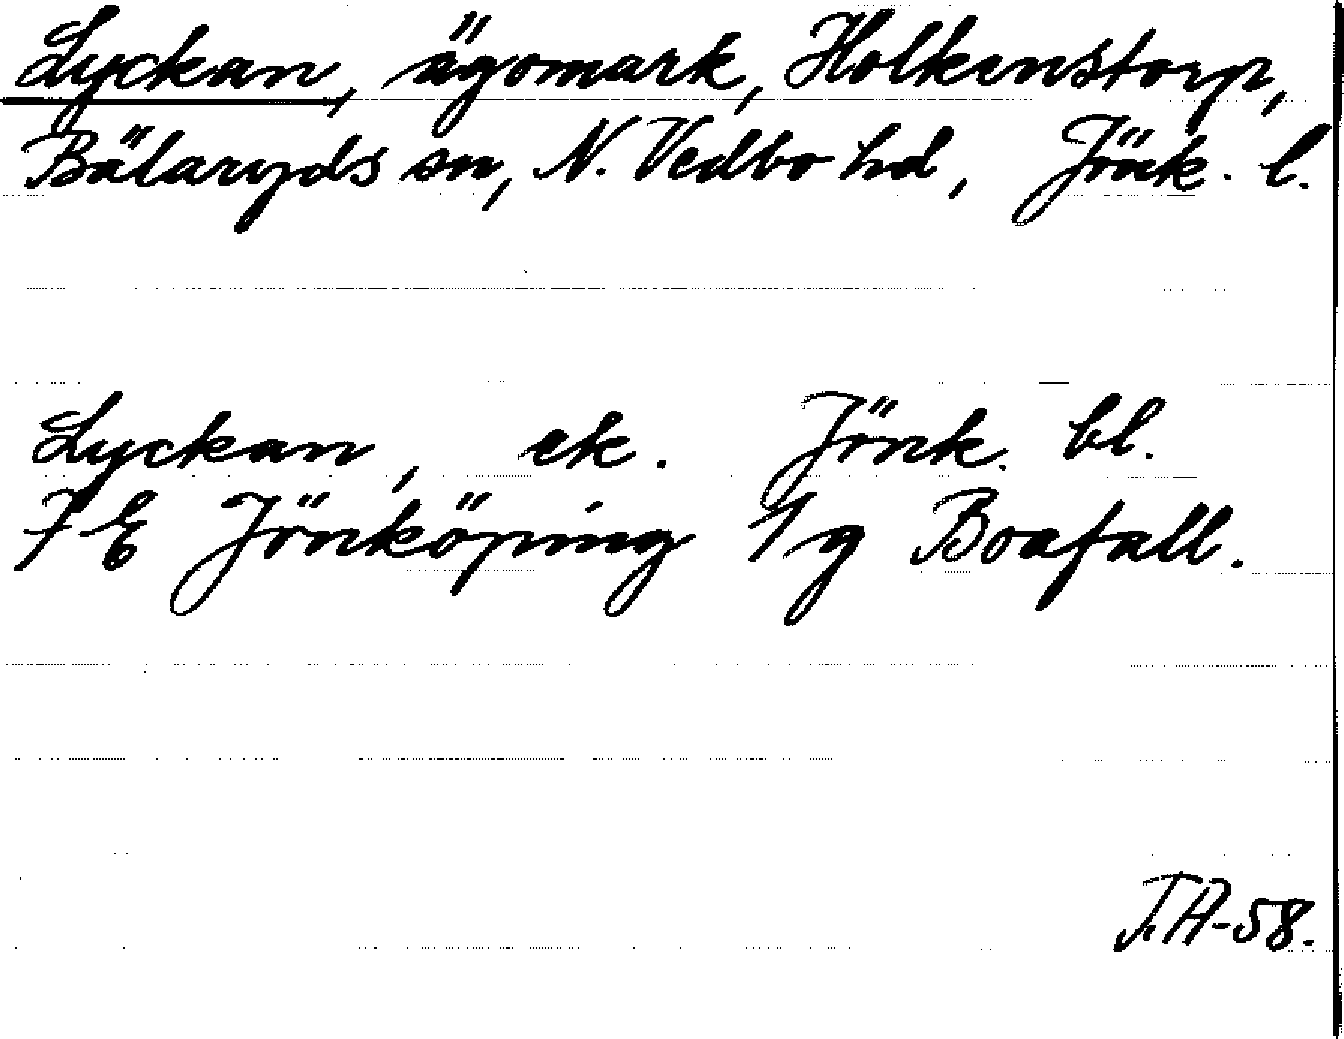 Lyckan, ägomark, Holkenstorp,
Bälaryds sn, N. Vedbo hd, Jönk. l.
Lyckan, ek. Jönk. bl.
7 E Jönköping 1 g Boafall.
J.A-58.